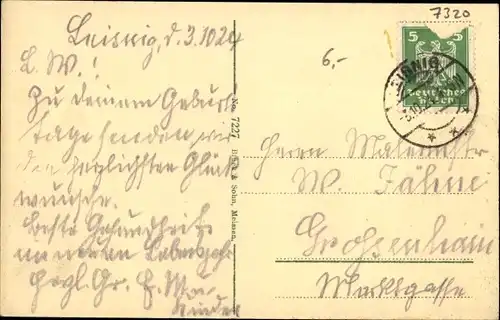 7320
Leisnig, d. 3.10.24
6,-
L. W.!
Zu deinem Geburts
tage senden wir
die herzlichsten Glück
wünsche.
Beste Gesundheit
im neuen Lebensjahr
Herzl. Gr.
Kinder
No. 7227 Brück & Sohn, Meissen.
5 5
Deutsches
Reich
Herrn Malermstr
W. Fähne
Großenhain
Marktgasse